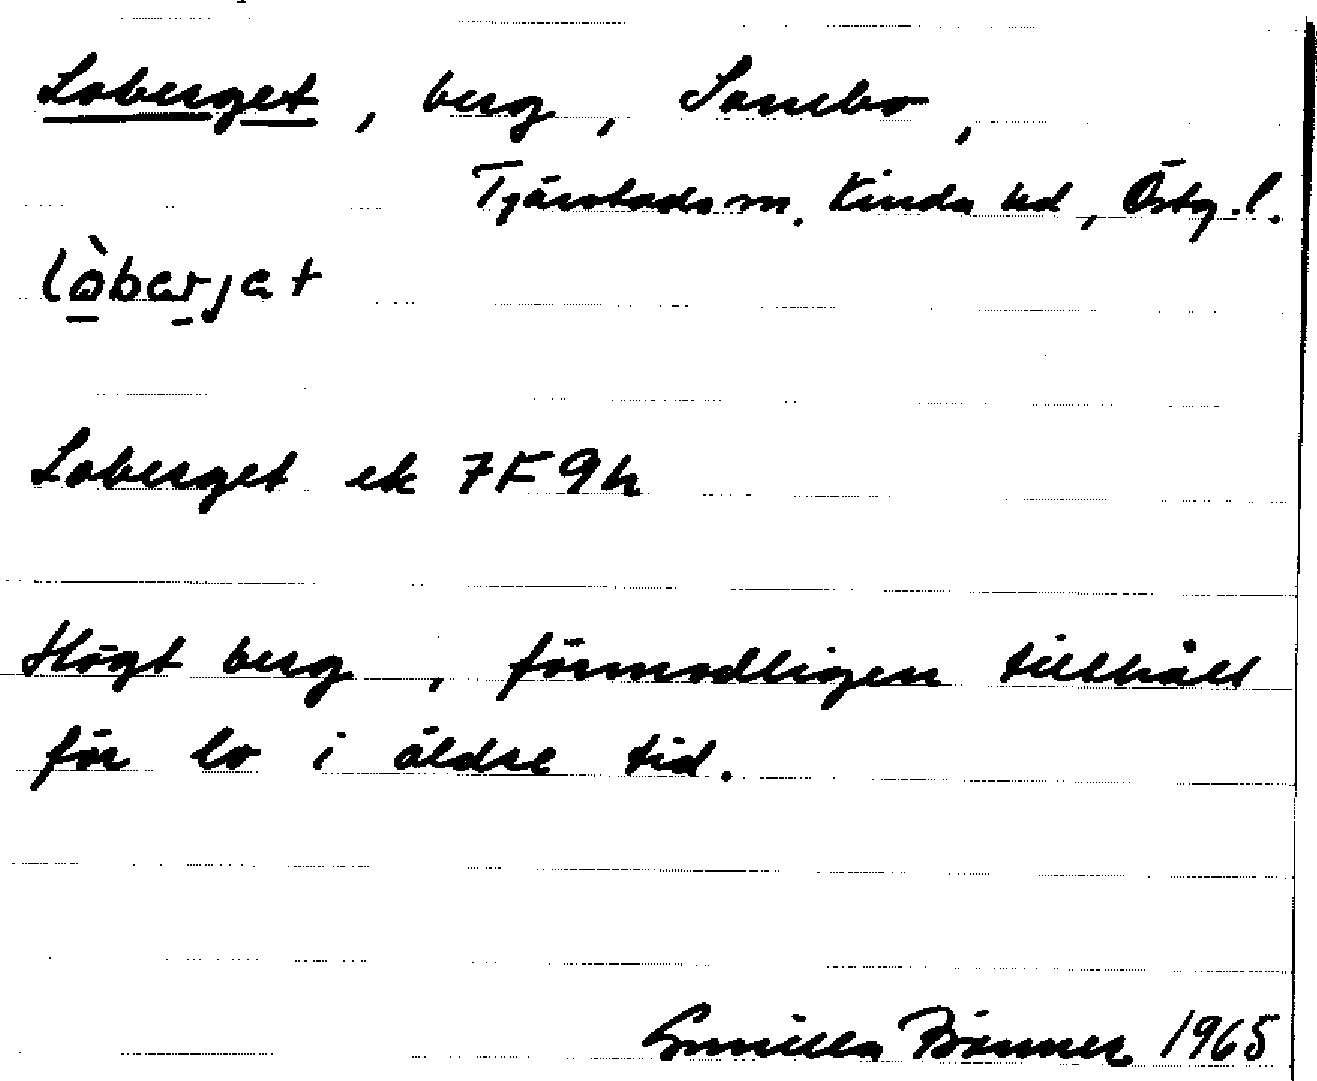 Loberget, berg, Sonebo,
Tjärstads sn. Kinda hd, Östg.l.
lòbærjet
Loberget ek 7F9h
Högt berg, förmodligen tillhåll
för lo i äldre tid.
Gunilla 1965